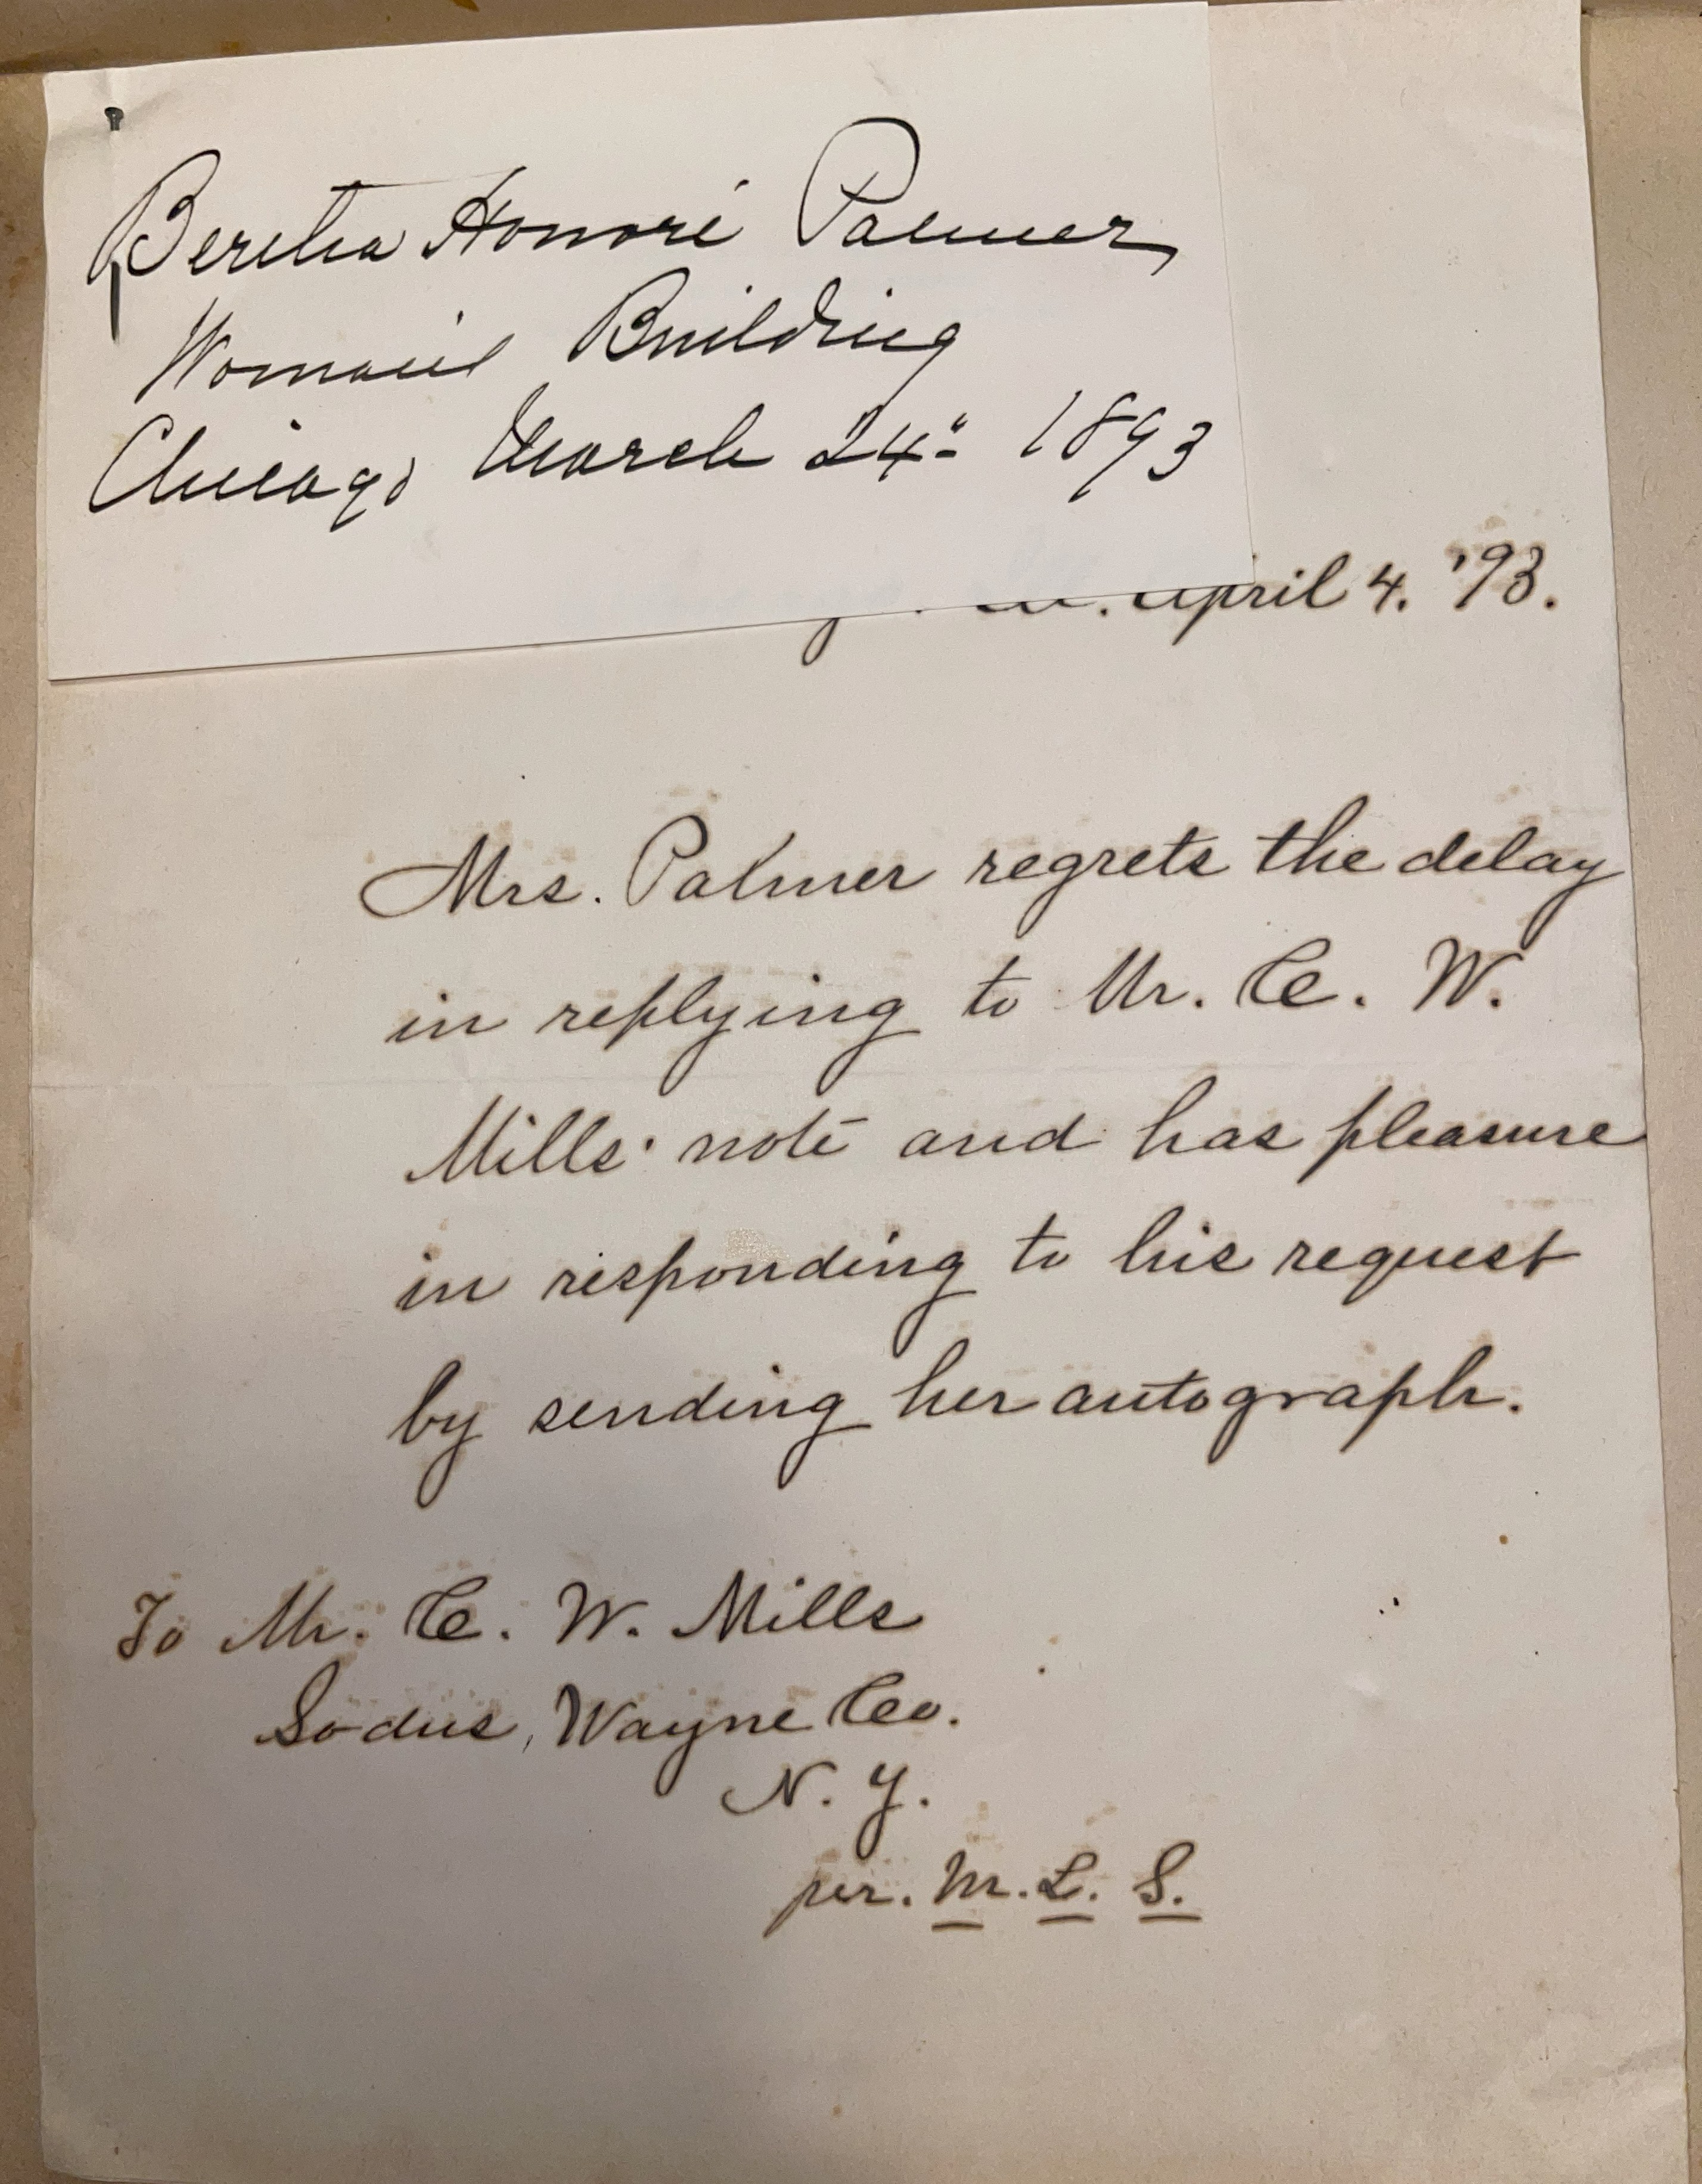 Bertha Honoré Palmer
Woman's Building
Chicago March 24" 1893
April 4. '93.
Mrs. Palmer regrets the delay
in replying to Mr. C. W.
Mills' note and has pleasure
in responding to his request
by sending her autograph.
To Mr. C. W. Mills
Sodus, Wayne Co.
N. Y.
per. M. L. S.